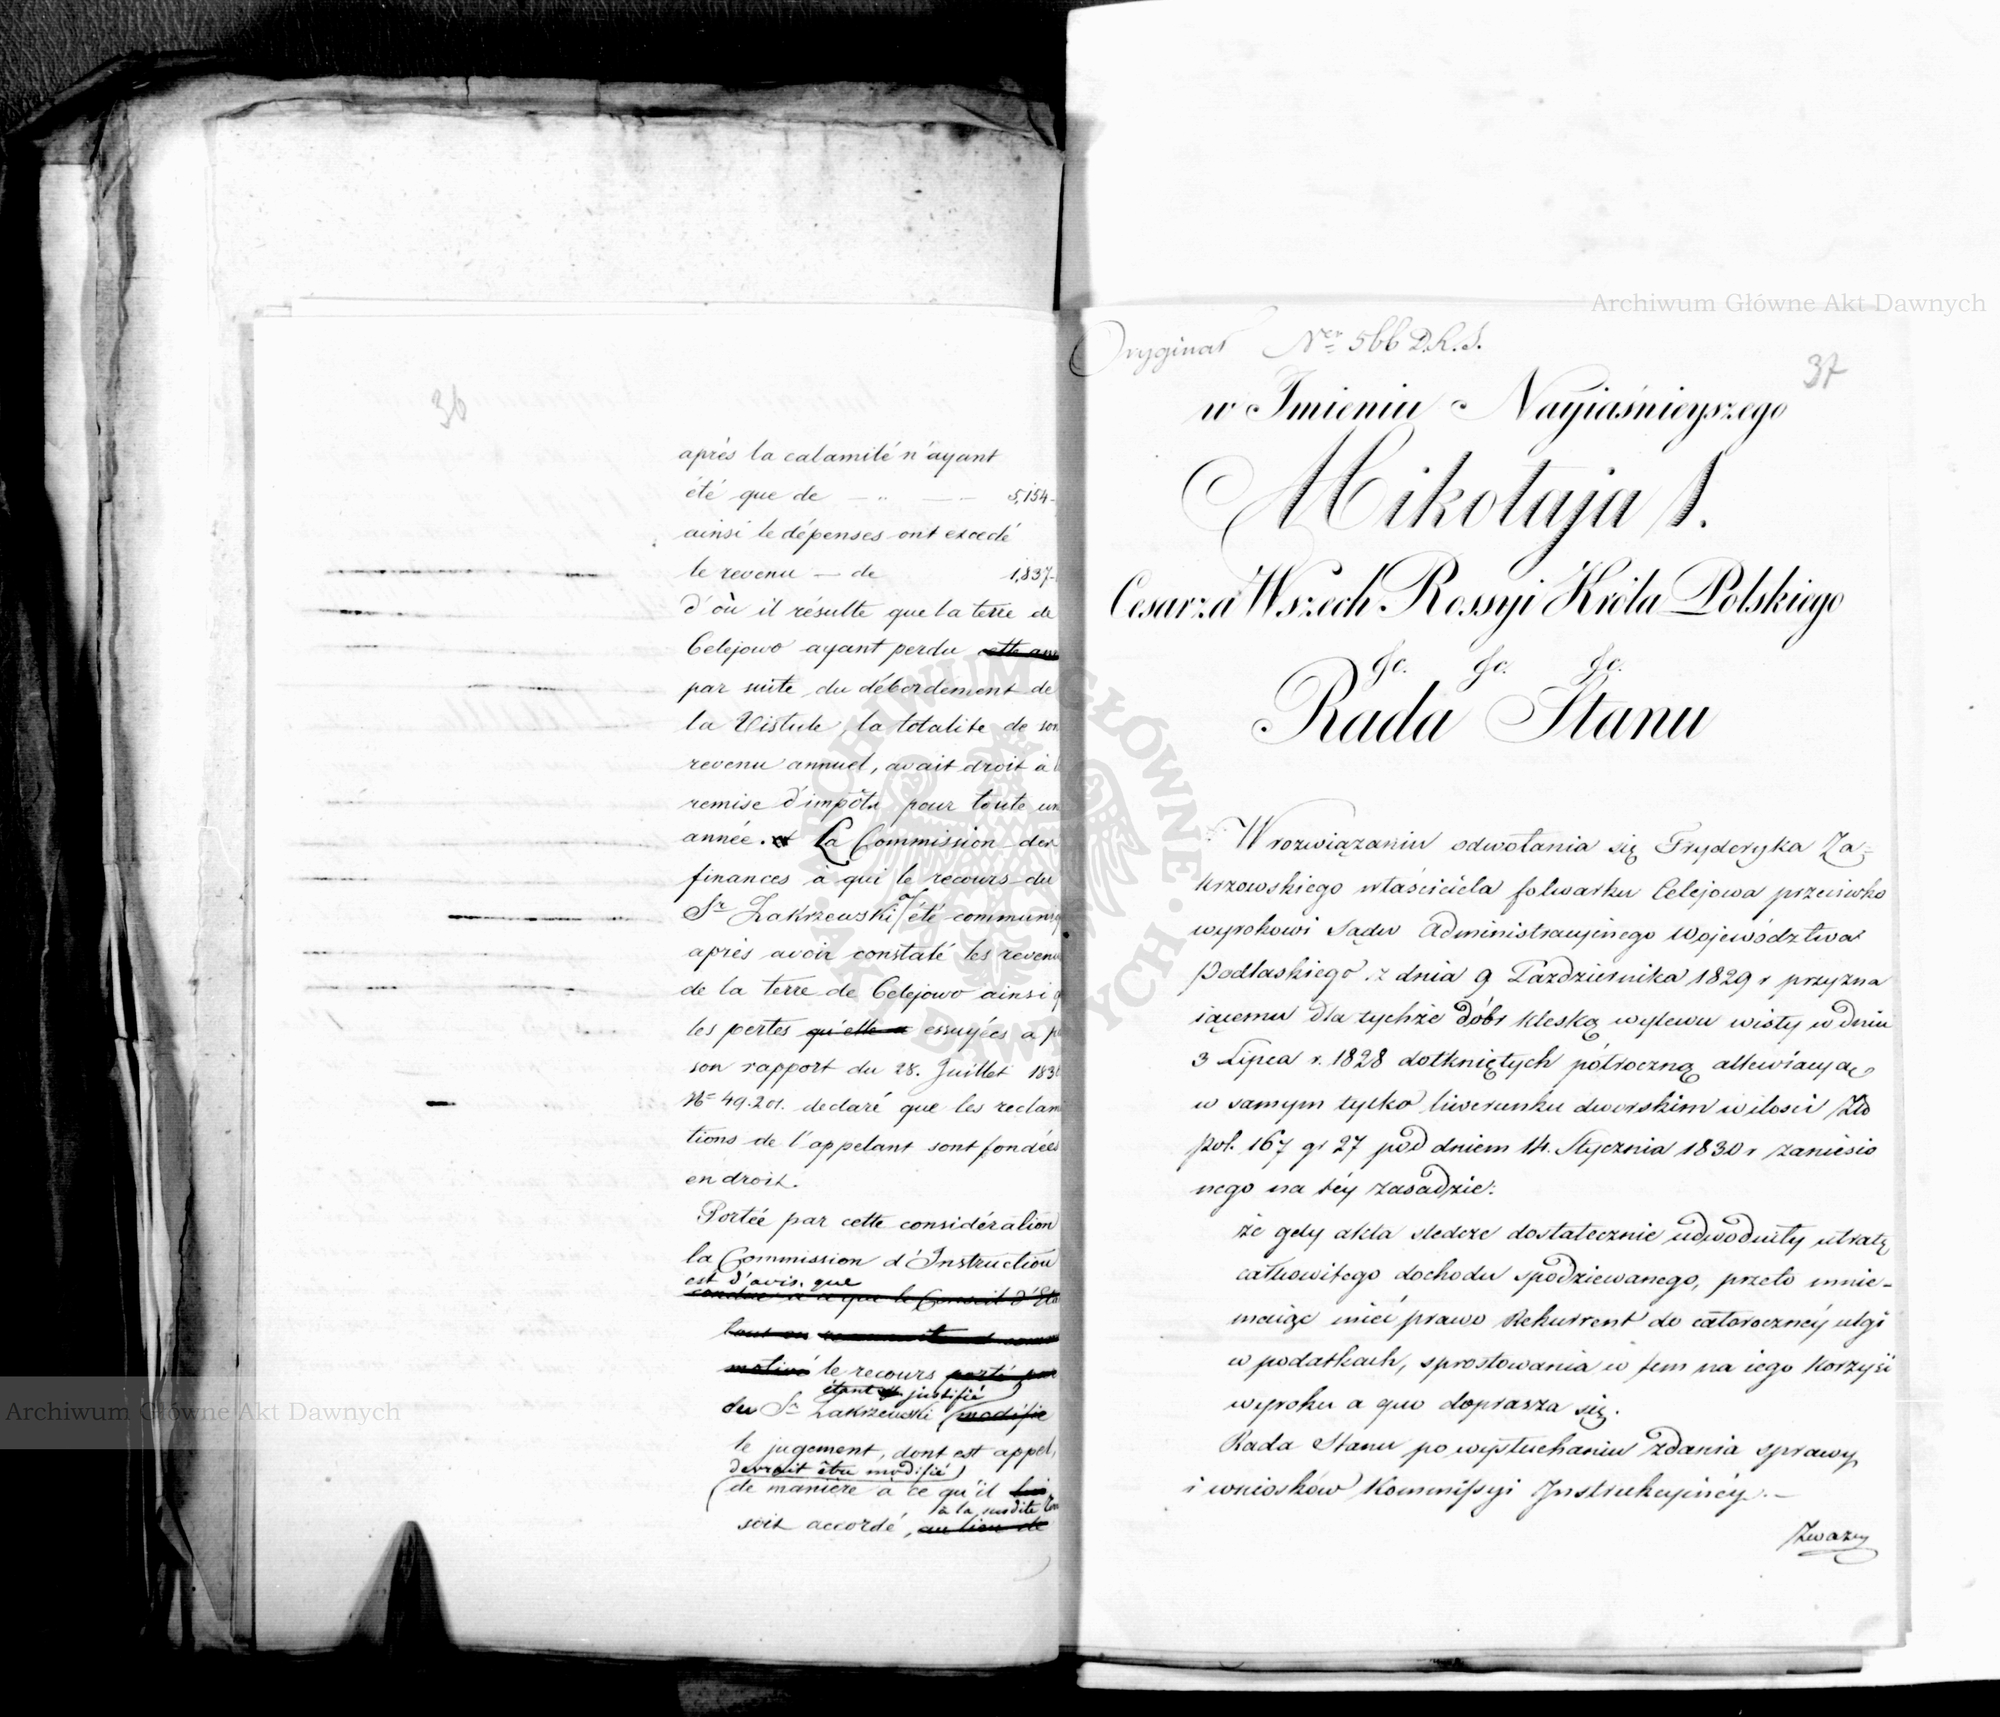 36
après la calamité n'ayant
été que de — " — 5,154
ainsi le dépenses ont excedé
le revenu — de 1,837
d'où il résulte que la terre de
Celejowo ayant perdu
par suite du débordement de
la Vistule, la totalite de son
revenu annuel, avait droit à
remise d'impôts pour toute
année. La Commission des
finances à qui le recours du
Sr Zakrzewski a été
après avoir constaté les
de la terre de Celejowo ainsi
les pertes qu'elle a essuyées a
son rapport du 28. Juillet
No 49.201. declaré que les
tions de l'appelant sont fondées
en droit.
Portée par cette considération
la Commission d'Instruction
est d'avis que
conclue à ce que le Conseil d'
motivé le recours porté par
étant justifié
du Sr Zakrzewski (modifie
le jugement, dont est appel,
devrait être modifié)
(de manière à ce qu'il lui
à la susdite
soit accordé, au lieu de
Oryginał Nro 566 D.R.S.
37
w Imieniu Nayiaśnieyszego
Mikołaja I.
Cesarza Wszech Rossyi Króla Polskiego
&c. &c. &c.
Rada Stanu
W rozwiązaniu odwołania się Fryderyka Za=
krzowskiego właściciela folwarku Celejowa przeciwko
wyrokowi Sądu Administracyinego Województwa
Podlaskiego z dnia 9 Października 1829 r przyzna
iącemu dla tychże dóbr klęską wylewu wisły w dniu
3 Lipca r. 1828 dotkniętych półroczną allewiacyą
w samym tylko liwerunku dworskim w ilości Złο
pol. 167 gr 27 pod dniem 14. Stycznia 1830 r zaniesio
nego na téy zasadzie:
że gdy akta śledcze dostatecznie udwodniły utratę
całkowitego dochodu spodziewanego, przeto mnie-
maiąc mieć prawo Rekurrent do całoroczney ulgi
w podatkach, sprostowania w tem na iego korzyść
wyroku a quo doprasza się.
Rada Stanu po wysłuchaniu zdania sprawy
i wniosków Kommissyi Instrukcyinéy. —
Zważy
Archiwum Główne Akt Dawnych
Archiwum Główne Akt Dawnych
ARCHIWUM GŁÓWNE AKT DAWNYCH